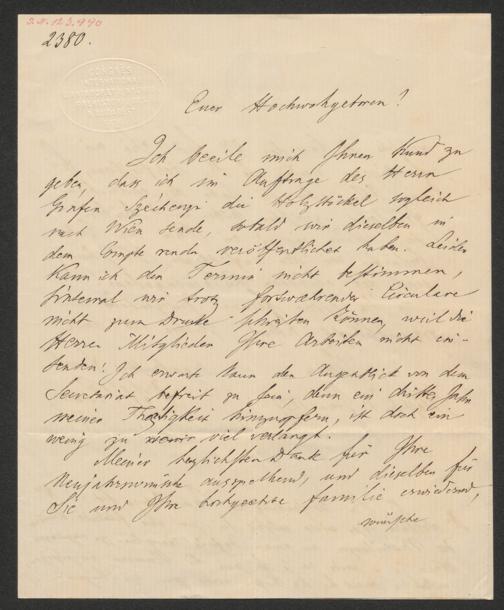 I.N. 123.990
2380.
Euer Hochwohgeboren!
Ich beeile mich Ihnen Kund zu
geben, dass ich im Auftrage des Herrn
Grafen Szechenyi die Holzstöckel sogleich
nach Wien sende, sobald wir dieselben in
dem Compte rendu veröffentlichet haben. Leider
Kann ich den Termin nicht bestimmen,
sintemal wir trotz fortwæhrender Circulare
nicht zum Drucke schreiten können, weil die
Herren Mitglieder Ihre Arbeiten nicht ein-
senden! Ich erwarte kaum den Augenblick von dem
Secretariat befreit zu sein, denn ein drittes Jahr
meiner Thætigkeit hinzuopfern, ist doch ein
wenig zu viel verlangt.
Meinen herzlichsten Dank für Ihre
Neujahrswünsche aussprechend, und dieselben für
Sie und Ihre hochgeehrte Familie erwiedernd,
wünsche